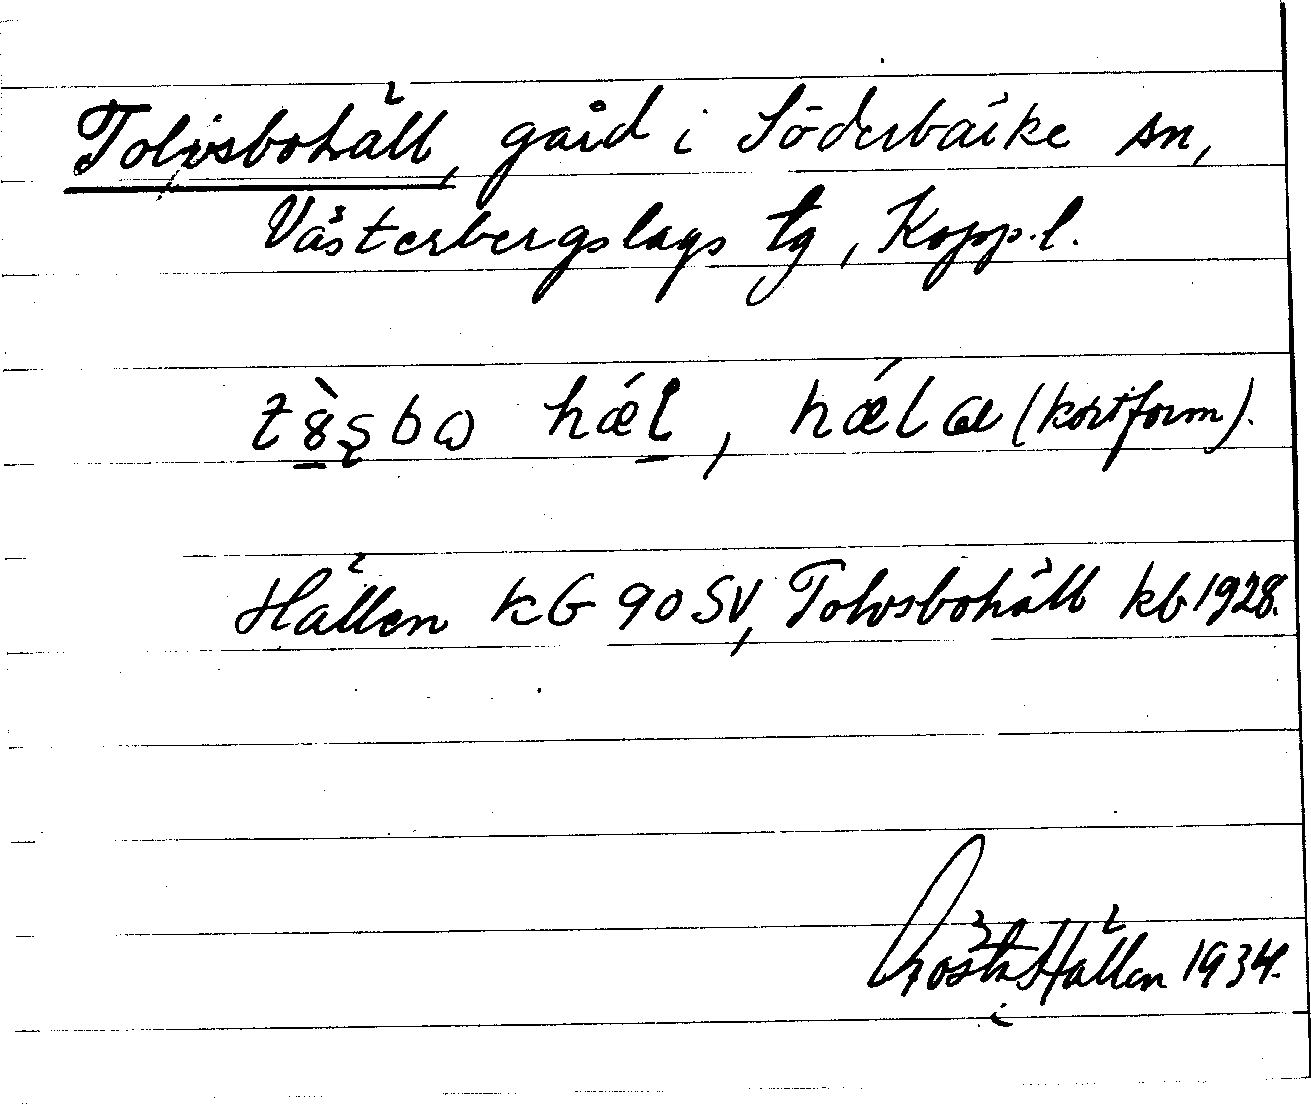 Tolvsbohäll, gård i Söderbärke sn,
Västerbergslags tg, Kopp.l.
hæl, hælæ (kortform).
Hällen KG 90 SV, Tolvsbohäll kb 1928.
Gösta Hallén 1934.